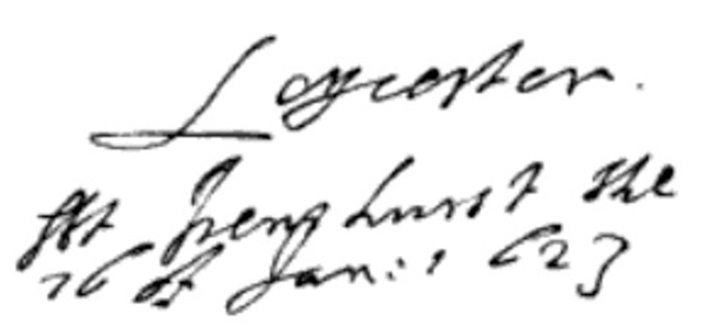 Leycester.
At Penshurst the
16 of Jan: 1623